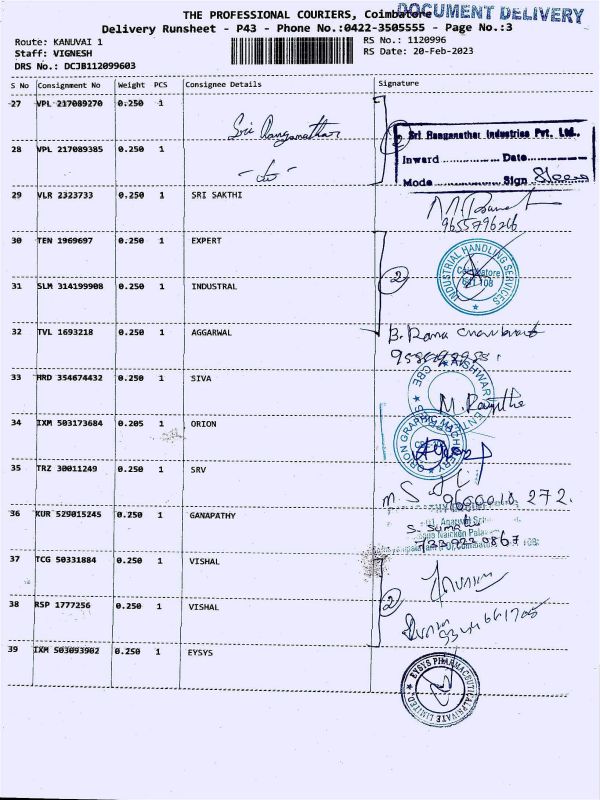 THE PROFESSIONAL COURIERS, Coimbatore
DOCUMENT DELIVERY
Delivery Runsheet - P43 - Phone No.:0422-3505555 - Page No.:3
Route: KANUVAI 1
RS No.: 1120996
Staff: VIGNESH
RS Date: 20-Feb-2023
DRS No.: DCJB112099603
S No Consignment No Weight PCS Consignee Details Signature
27 VPL 217089270 0.250 1 Sri Ranganathar
Sri Ranganathar Industries Pvt. Ltd.,
Inward ............... Date...............
Mode ............... Sign
28 VPL 217089385 0.250 1 - do -
29 VLR 2323733 0.250 1 SRI SAKTHI
9655796266
30 TEN 1969697 0.250 1 EXPERT
INDUSTRIAL HANDLING SERVICES
Coimbatore
641 108
2
31 SLM 314199908 0.250 1 INDUSTRAL
32 TVL 1693218 0.250 1 AGGARWAL
B. Rama
33 MRD 354674432 0.250 1 SIVA
CBE
34 IXM 503173684 0.205 1 ORION
ORION GRAPHIC MACHINERY
35 TRZ 30011249 0.250 1 SRV
36 KUR 529015245 0.250 1 GANAPATHY
37 TCG 50331884 0.250 1 VISHAL
2
38 RSP 1777256 0.250 1 VISHAL
39 IXM 503093902 0.250 1 EYSYS
EYSYS PHARMACEUTICAL PRIVATE LIMITED